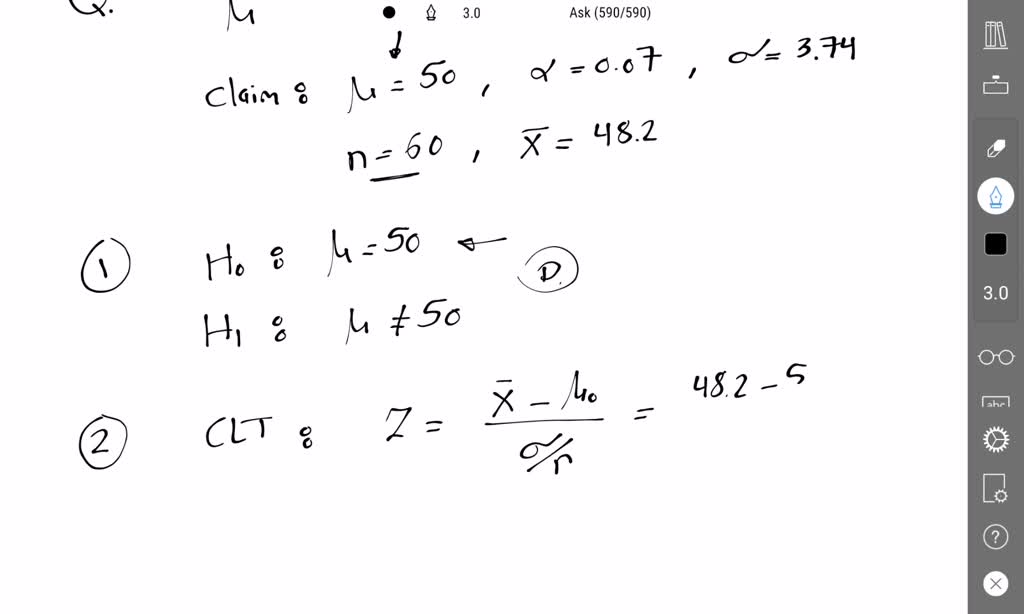 Q. μ
3.0 Ask (590/590)
Claim : μ = 50 , α = 0.07 , σ = 3.74
n = 60 , x̄ = 48.2
① H₀ : μ = 50 ← D.
H₁ : μ ≠ 50
② CLT : Z = (x̄ - μ₀) / (σ/r) = 48.2 - 5
3.0
abc
?